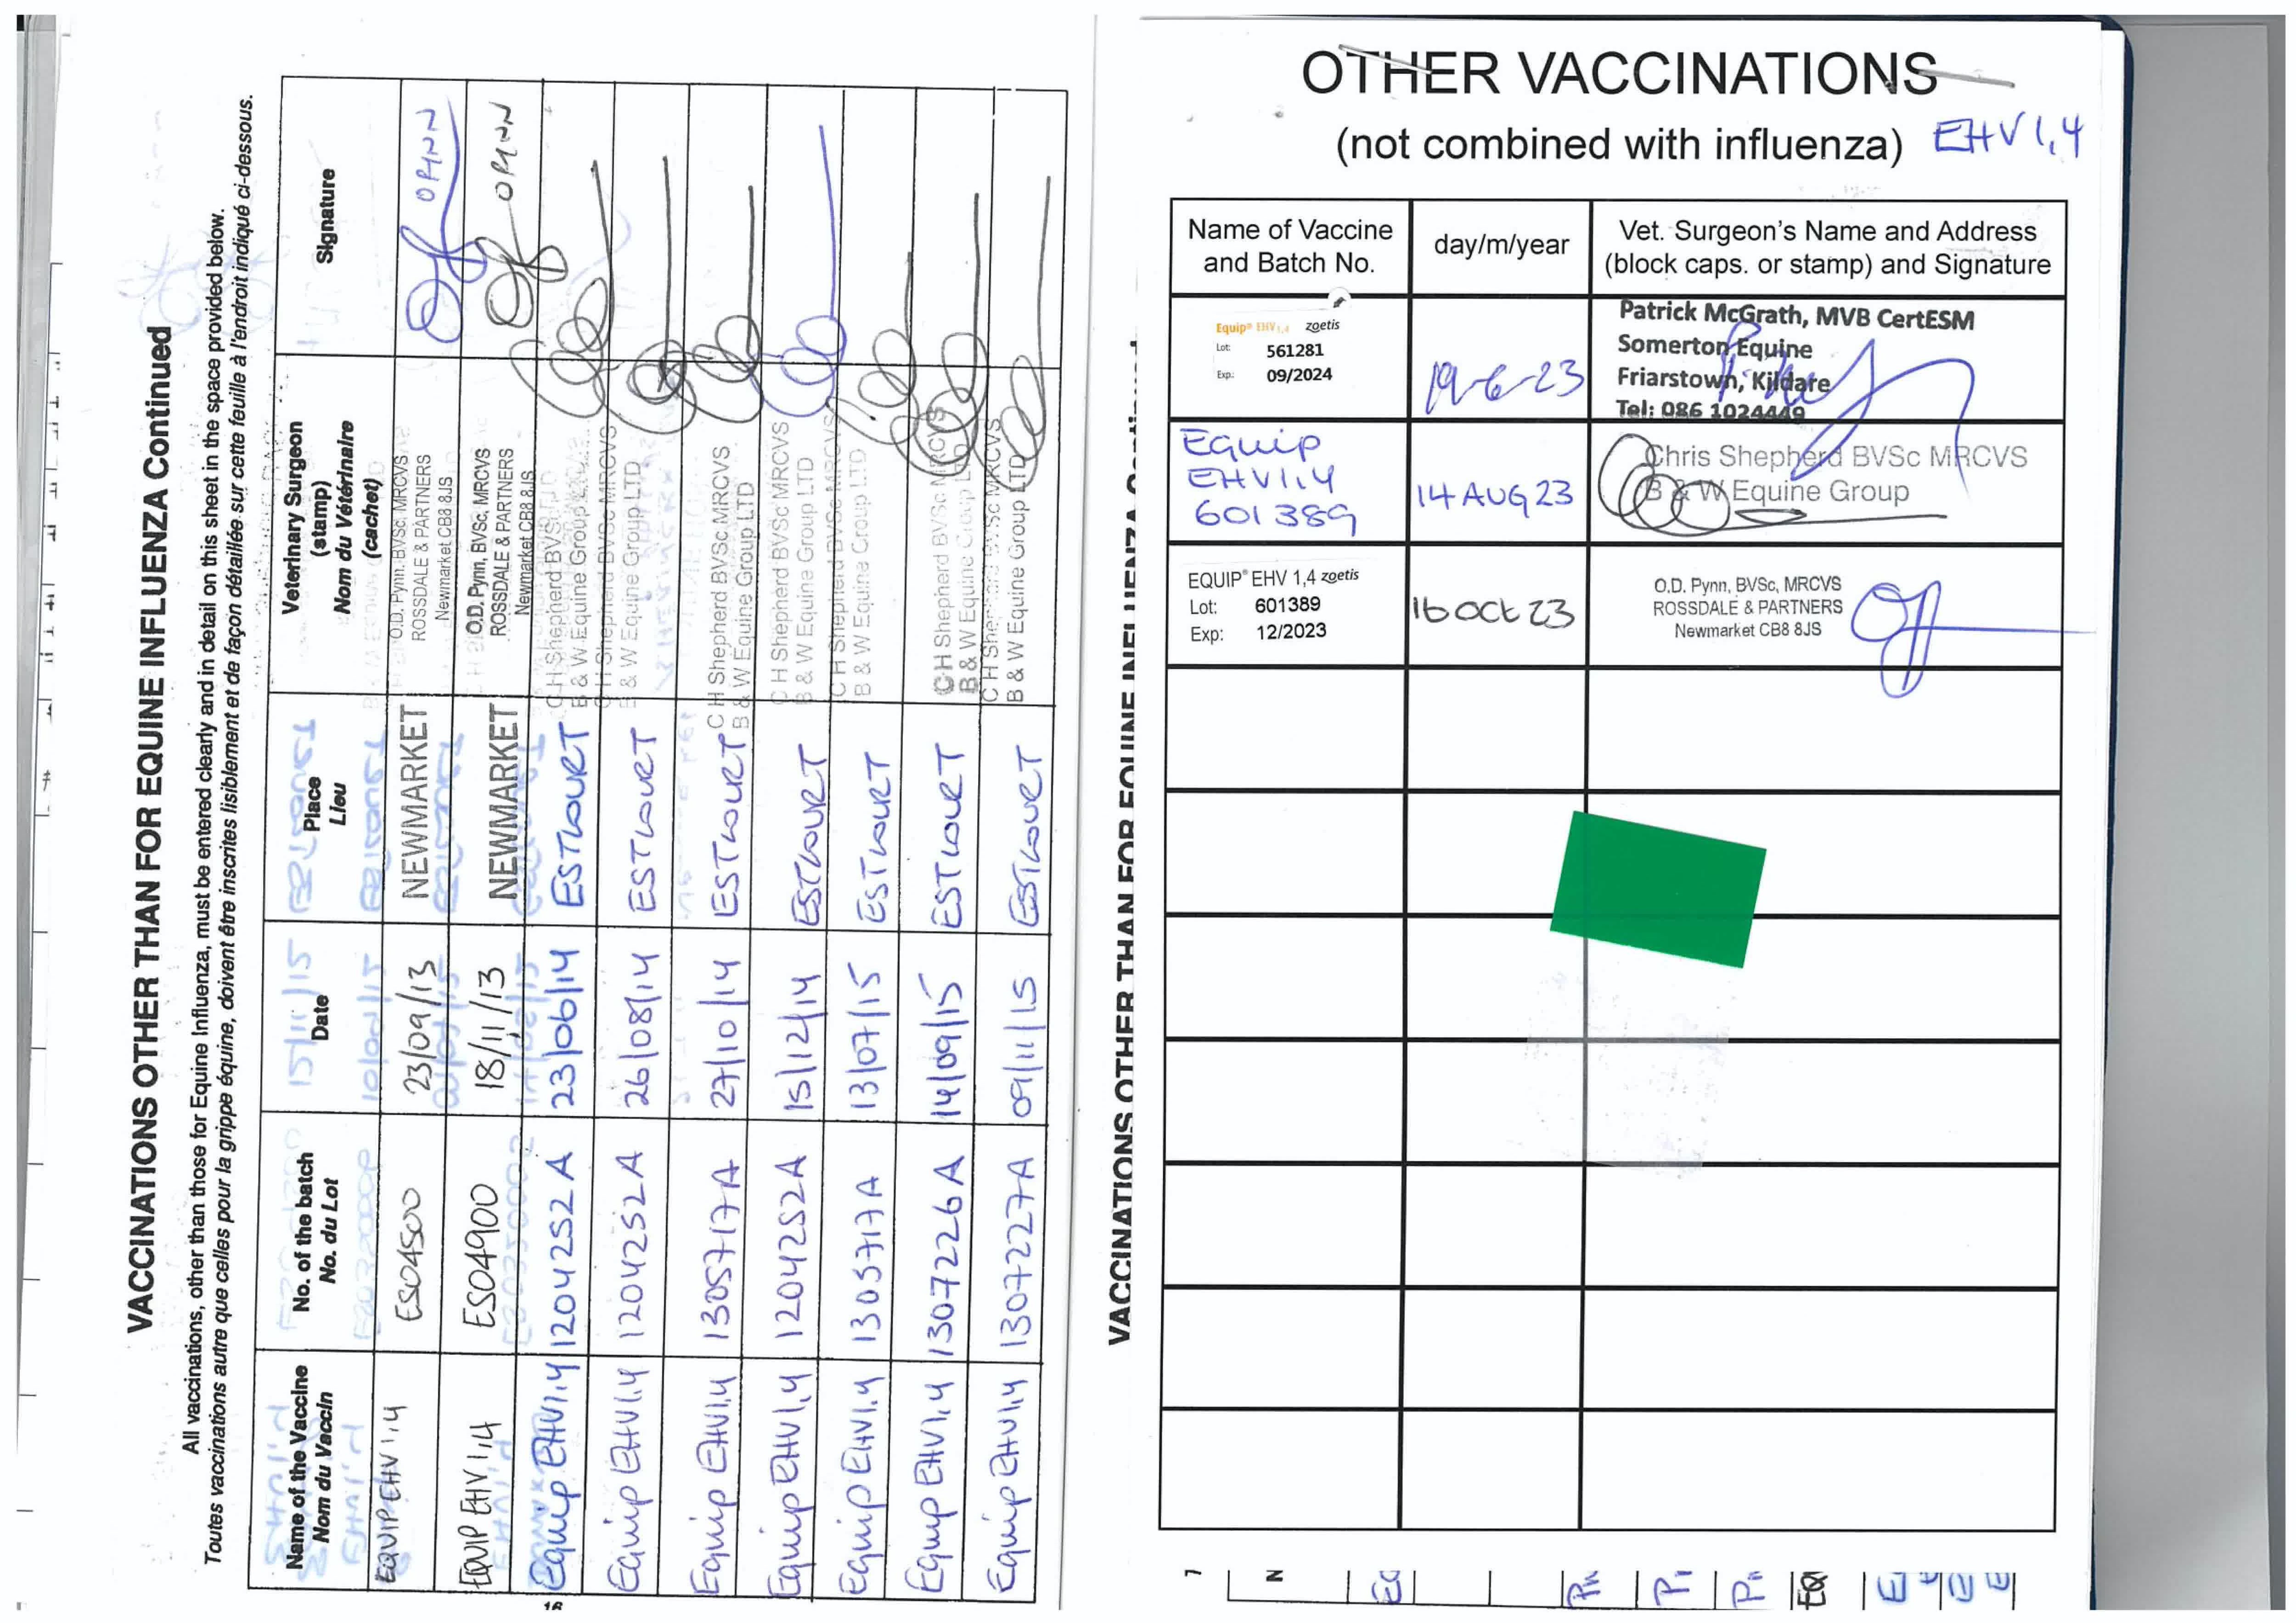 VACCINATIONS OTHER THAN FOR EQUINE INFLUENZA Continued
All vaccinations, other than those for Equine Influenza, must be entered clearly and in detail on this sheet in the space provided below.
Toutes vaccinations autre que celles pour la grippe équine, doivent être inscrites lisiblement et de façon détaillée sur cette feuille à l'endroit indiqué ci-dessous.
Name of the Vaccine
Nom du Vaccin
No. of the batch
No. du Lot
Date
Place
Lieu
Veterinary Surgeon
(stamp)
Nom du Vétérinaire
(cachet)
Signature
EQUIP EHV 1,4 ES04500 23/09/13 NEWMARKET
O.D. Pynn, BVSc, MRCVS
ROSSDALE & PARTNERS
Newmarket CB8 8JS
OPYNN
EQUIP EHV 1,4 ES04900 18/11/13 NEWMARKET
O.D. Pynn, BVSc, MRCVS
ROSSDALE & PARTNERS
Newmarket CB8 8JS
OPYNN
Equip EHV1,4 12042S2A 23/06/14 ESTCOURT
C H Shepherd BVSc
B & W Equine Group
Equip EHV1,4 12042S2A 26/08/14 ESTCOURT
C H Shepherd BVSc MRCVS
B & W Equine Group LTD
Equip EHV1,4 130S717A 27/10/14 ESTCOURT
C H Shepherd BVSc MRCVS
B & W Equine Group LTD
Equip EHV1,4 12042S2A 15/12/14 ESTCOURT
C H Shepherd BVSc MRCVS
B & W Equine Group LTD
Equip EHV1,4 130S717A 13/07/15 ESTCOURT
C H Shepherd BVSc MRCVS
B & W Equine Group LTD
Equip EHV1,4 1307226A 14/09/15 ESTCOURT
C H Shepherd BVSc MRCVS
B & W Equine Group LTD
Equip EHV1,4 1307227A 09/11/15 ESTCOURT
C H Shepherd BVSc MRCVS
B & W Equine Group LTD
16
VACCINATIONS OTHER THAN FOR EQUINE INFLUENZA
OTHER VACCINATIONS
(not combined with influenza) EHV 1,4
Name of Vaccine
and Batch No.
day/m/year
Vet. Surgeon's Name and Address
(block caps. or stamp) and Signature
Equip® EHV 1,4 zoetis
Lot: 561281
Exp: 09/2024
19-6-23
Patrick McGrath, MVB CertESM
Somerton Equine
Friarstown, Kildare
Tel: 086 1024449
Equip
EHV1,4
601389
14 AUG 23
Chris Shepherd BVSc MRCVS
B & W Equine Group
EQUIP® EHV 1,4 zoetis
Lot: 601389
Exp: 12/2023
16 Oct 23
O.D. Pynn, BVSc, MRCVS
ROSSDALE & PARTNERS
Newmarket CB8 8JS